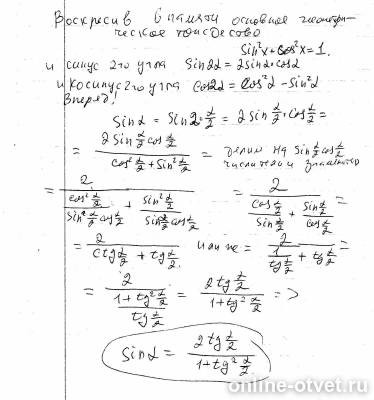 Воскресив в памяти основное геометри-
ческое тождество
Sin²x + Cos²x = 1.
и синус 2го угла Sin2α = 2sinα·cosα
и косинус 2го угла Cos2α = Cos²α - Sin²α
Вперед!
Sinα = Sin2·α/2 = 2Sin α/2 · Cos α/2 =
= (2Sin α/2 cos α/2)/(cos² α/2 + Sin² α/2) = делим на Sin α/2 cos α/2 числитель и знаменатель
= 2/((cos² α/2)/(Sin α/2 cos α/2) + (Sin² α/2)/(Sin α/2 cos α/2)) = 2/((Cos α/2)/(Sin α/2) + (Sin α/2)/(Cos α/2)) =
= 2/(ctg α/2 + tg α/2) или же = 2/(1/(tg α/2) + tg α/2) =
= 2/((1+tg² α/2)/(tg α/2)) = (2tg α/2)/(1+tg² α/2) =>
Sinα = (2tg α/2)/(1+tg² α/2)
online-otvet.ru